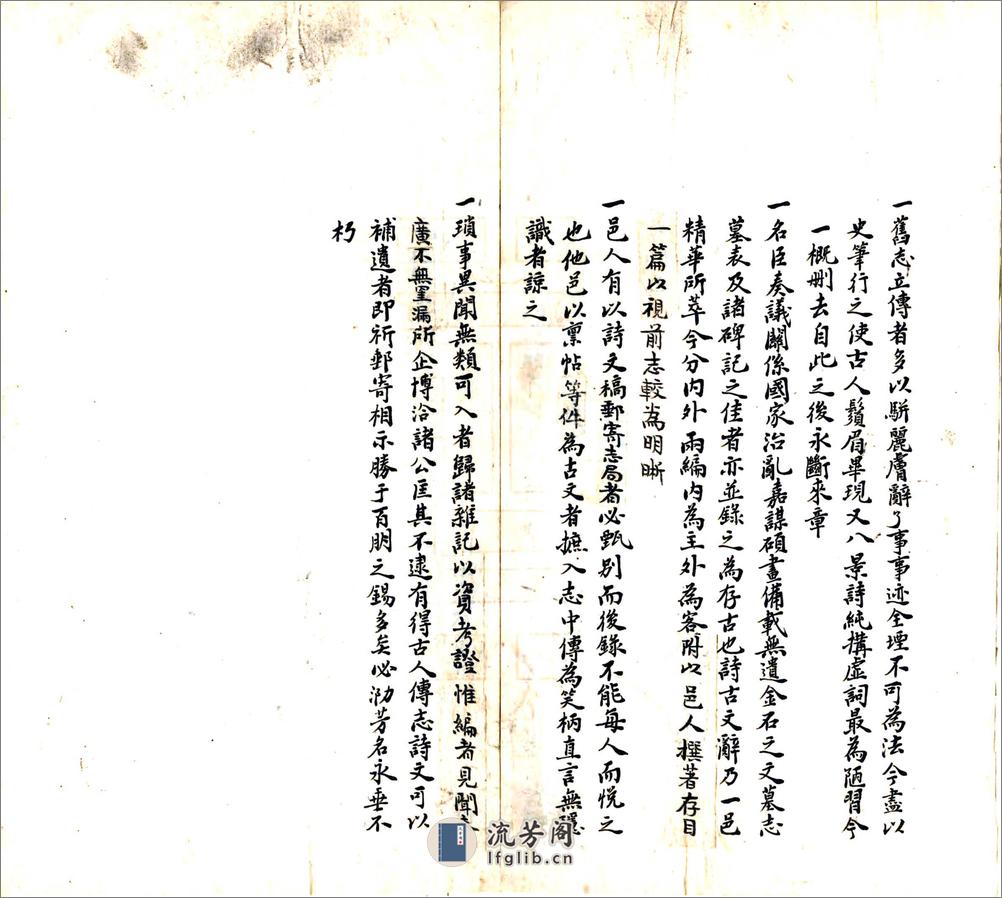 一舊志立傳者多以駢麗膚辭了事事迹全堙不可為法今盡以
史筆行之使古人鬚眉畢現又八景詩純搆虛詞最為陋習今
一概刪去自此之後永斷來章
一名臣奏議關係國家治亂嘉謀碩畫備載無遺金石之文墓志
墓表及諸碑記之佳者亦並錄之為存古也詩古文辭乃一邑
精華所萃今分內外兩編內為主外為客附以邑人撰著存目
一篇以視前志較為明晰
一邑人有以詩文稿郵寄志局者必甄別而後錄不能每人而悅之
也他邑以稟帖等件為古文者摭入志中傳為笑柄直言無隱
識者諒之
一瑣事異聞無類可入者歸諸雜記以資考證惟編者見聞
廣不無罣漏所企博洽諸公匡其不逮有得古人傳志詩文可以
補遺者即祈郵寄相示勝于百朋之錫多矣必泐芳名永垂不
朽
流芳阁
lfglib.cn